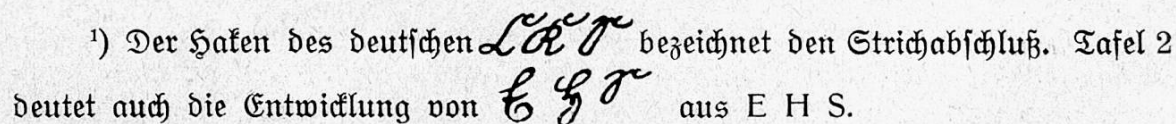 ¹) Der Haken des deutschen L K T bezeichnet den Strichabschluß. Tafel 2
deutet auch die Entwicklung von E H S aus E H S.